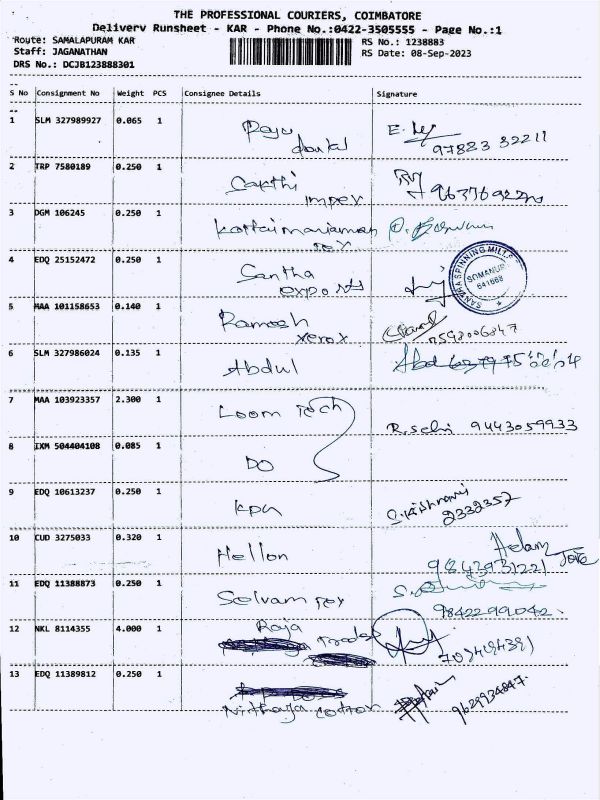 THE PROFESSIONAL COURIERS, COIMBATORE
Delivery Runsheet - KAR - Phone No.:0422-3505555 - Page No.:1
Route: SAMALAPURAM KAR
RS No.: 1238883
Staff: JAGANATHAN
RS Date: 08-Sep-2023
DRS No.: DCJB123888301
S No Consignment No Weight PCS Consignee Details Signature
1 SLM 327989927 0.065 1 Raju
dental
97823 32211
2 TRP 7580189 0.250 1 Sakthi
impex
3 DGM 106245 0.250 1 Kottaimariamman
tex
4 EDQ 25152472 0.250 1 Santha
exports
SPINNING MILLS
SOMANUR
641668
5 MAA 101158653 0.140 1 Ramesh
xerox
6 SLM 327986024 0.135 1 Abdul
7 MAA 103923357 2.300 1 Loom Tech
R. Selvi 9443059933
8 IXM 504404108 0.085 1 DO
9 EDQ 10613237 0.250 1 kpn
2332357
10 CUD 3275033 0.320 1 Hellon
11 EDQ 11388873 0.250 1 Selvam tex
9842299042
12 NKL 8114355 4.000 1 Raja
Traders
13 EDQ 11389812 0.250 1
Nithraja cotton
9629934847